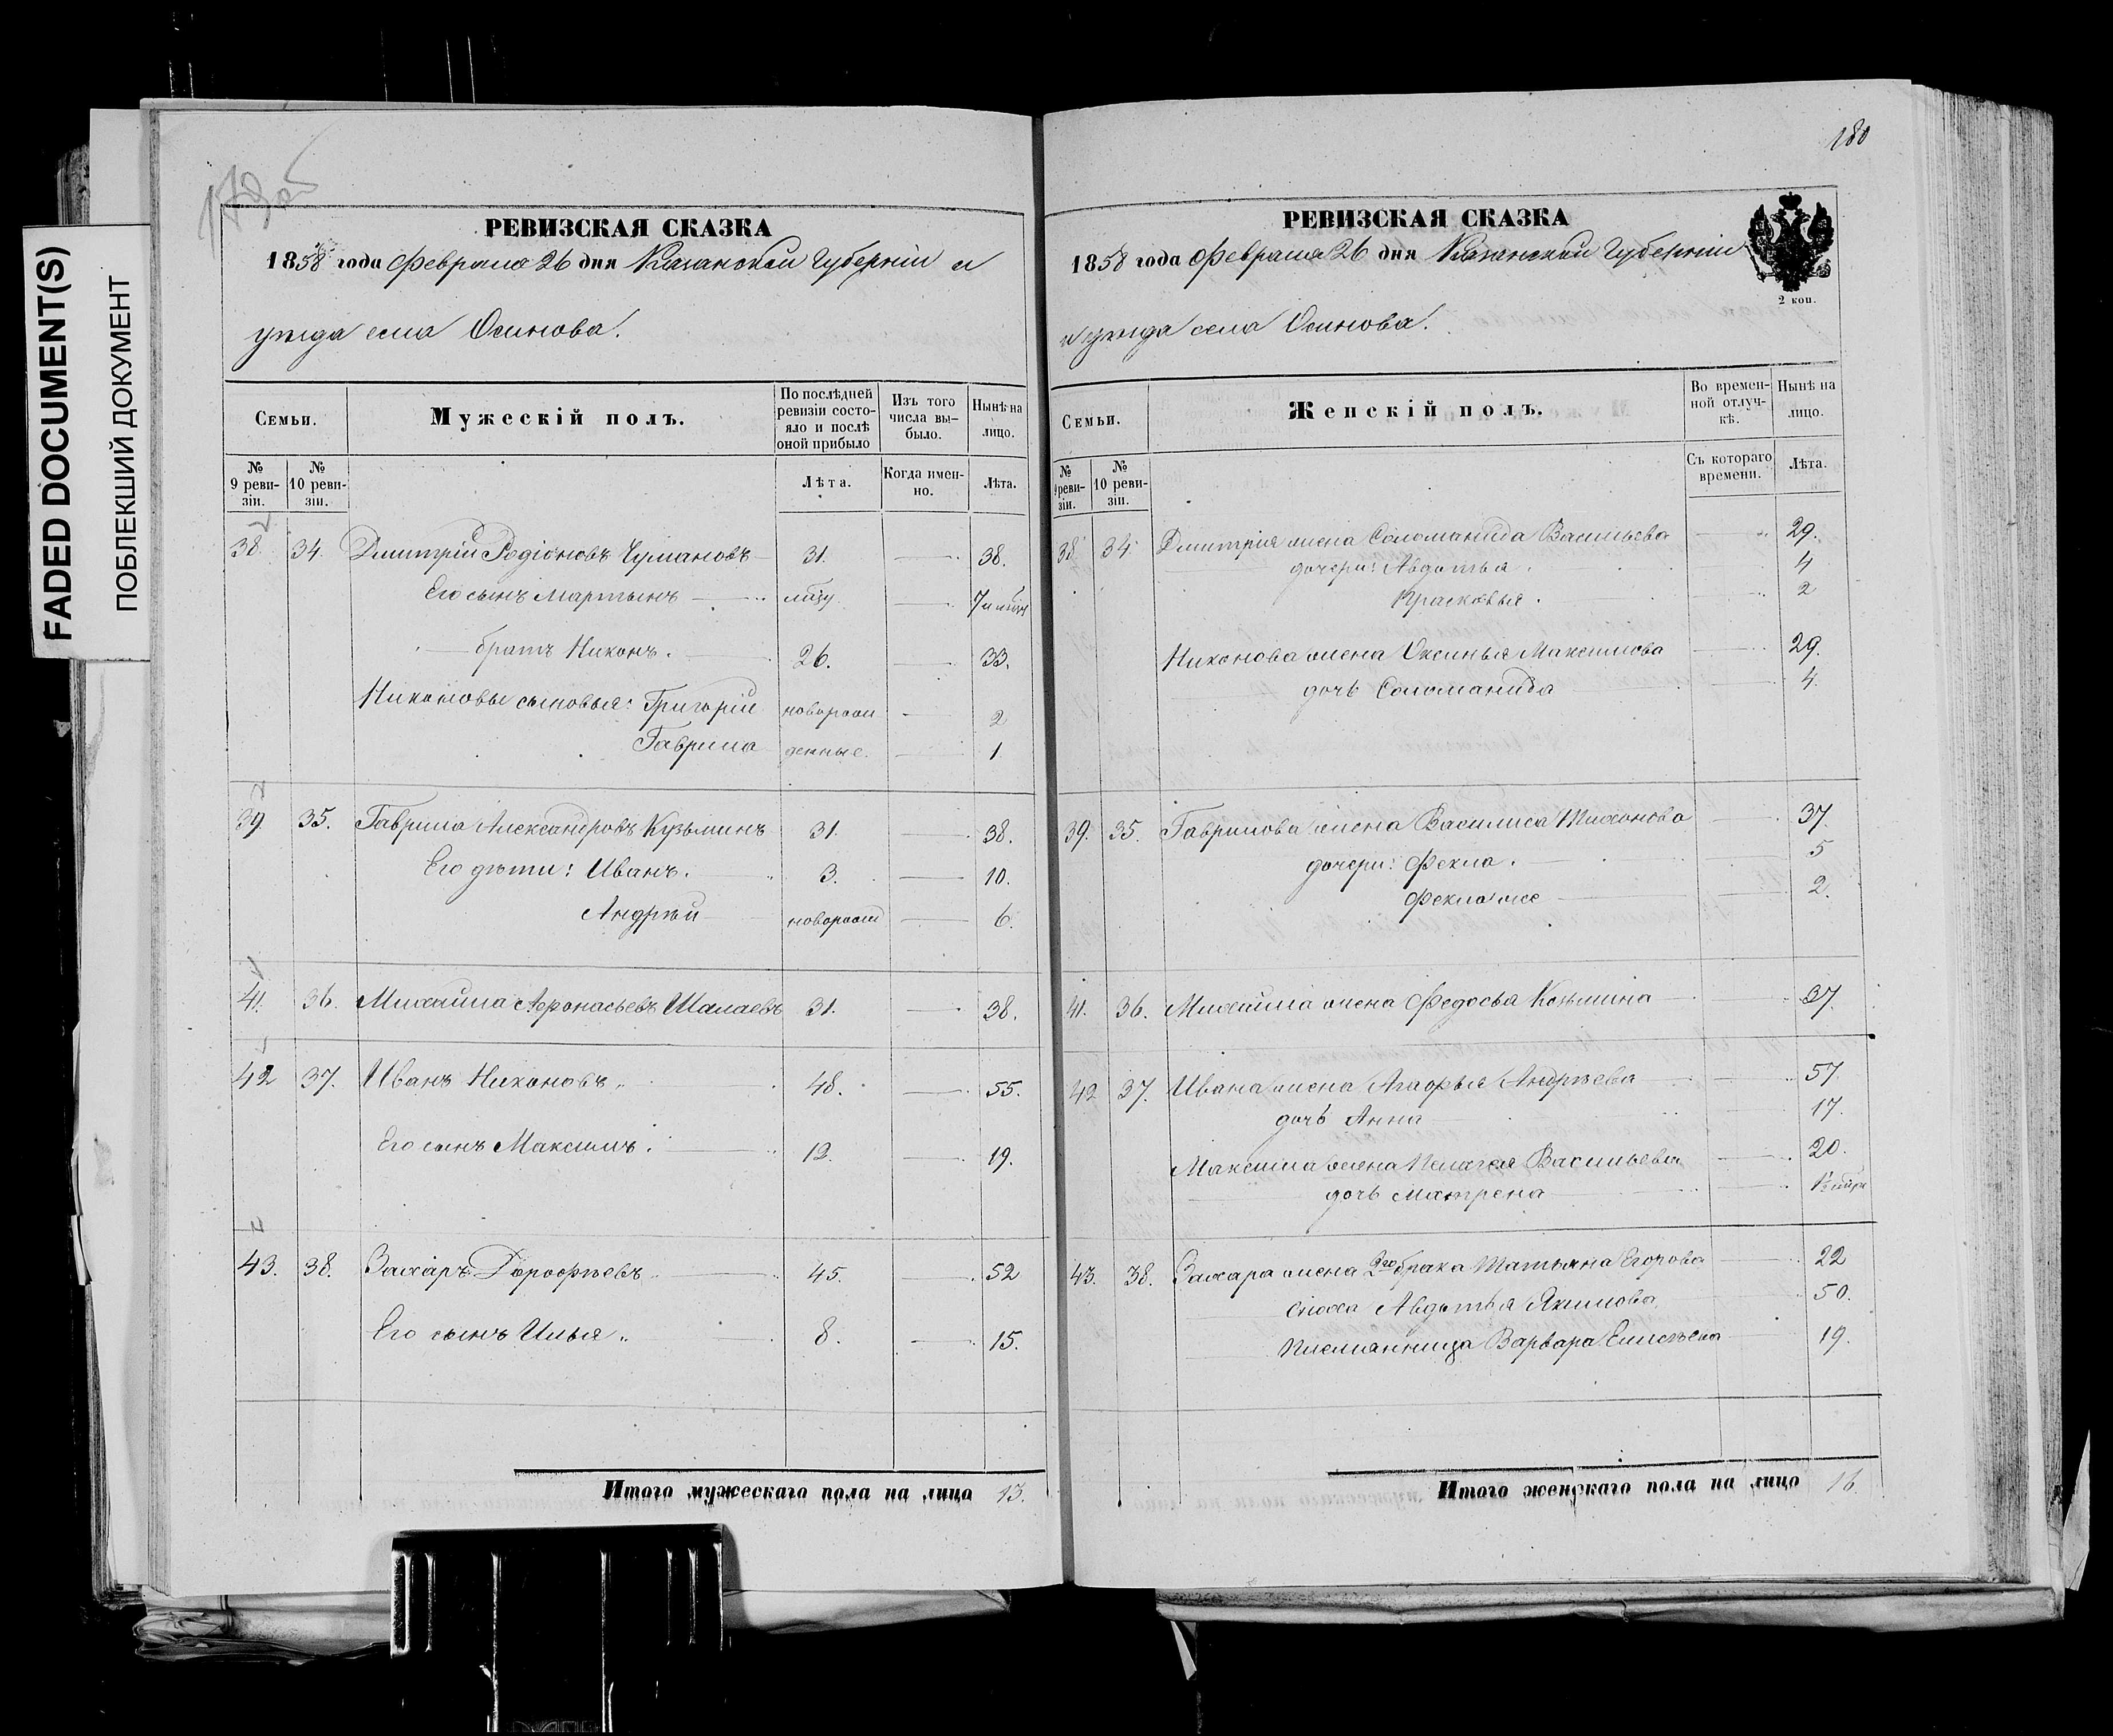 FADED DOCUMENT(S)
ПОБЛЕКШИЙ ДОКУМЕНТ
179 об
РЕВИЗСКАЯ СКАЗКА
1858 года Февраля 26 дня Казанской Губерніи и
уѣзда села Осинова.
Семьи.
Мужескій полъ.
По послѣдней ревизіи состояло и послѣ оной прибыло
Изъ того числа выбыло.
Нынѣ на лицо.
№ 9 ревизіи.
№ 10 ревизіи.
Лѣта.
Когда именно.
Лѣта.
38. 34. Дмитрій Родіоновъ Чумановъ 31. 38.
Его сынъ Мартынъ
братъ Никонъ. 26. 33.
Никоновы сыновья: Григорій новорож 2
Гаврила денные. 1
39. 35. Гаврила Александровъ Кузьминъ 31. 38.
Его дѣти: Иванъ. 3. 10.
Андрей новорожд 6.
41. 36. Михайла Афонасьевъ Шалаевъ 31. 38.
42 37. Иванъ Никоновъ 48. 55.
Его сынъ Максимъ. 12. 19.
43. 38. Захаръ Дорофѣевъ 45. 52
Его сынъ Илья 8. 15.
Итого мужескаго пола на лицо 13.
180
РЕВИЗСКАЯ СКАЗКА
1858 года Февраля 26 дня Казанской Губерніи
и уѣзда села Осинова.
2 коп.
Семьи.
Женскій полъ.
Во временной отлучкѣ.
Нынѣ на лицо.
№ 9 ревизіи.
№ 10 ревизіи.
Съ котораго времени.
Лѣта.
38. 34. Дмитрія жена Соломанида Васильева 29.
дочери: Авдотья 4
Прасковья 2
Никонова жена Оксинья Максимова 29.
дочь Соломанида 4.
39. 35. Гаврилова жена Василиса Тихонова 37.
дочери: Фекла. 5
Фекла же 2.
41. 36. Михайла жена Федосья Козьмина 37.
42 37. Ивана жена Агафья Андрѣева 57.
дочь Анна 17.
Максима жена Пелагея Васильева 20.
дочь Матрена
43. 38. Захара жена 2го брака Татьяна Егорова 22
сноха Авдотья Якимова 50.
племянница Варвара Елисѣева 19.
Итого женскаго пола на лицо 16.